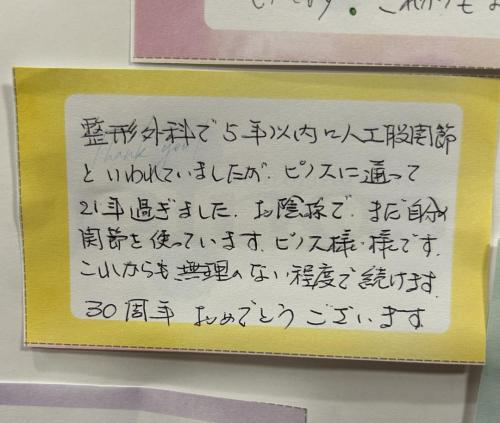 整形外科で5年以内に人工股関節
Thank you!
といわれていましたが、ピノスに通って
21年過ぎました。お陰様で、まだ自分の
関節を使っています。ピノス様・様です。
これからも無理のない程度で続けます。
30周年 おめでとうございます